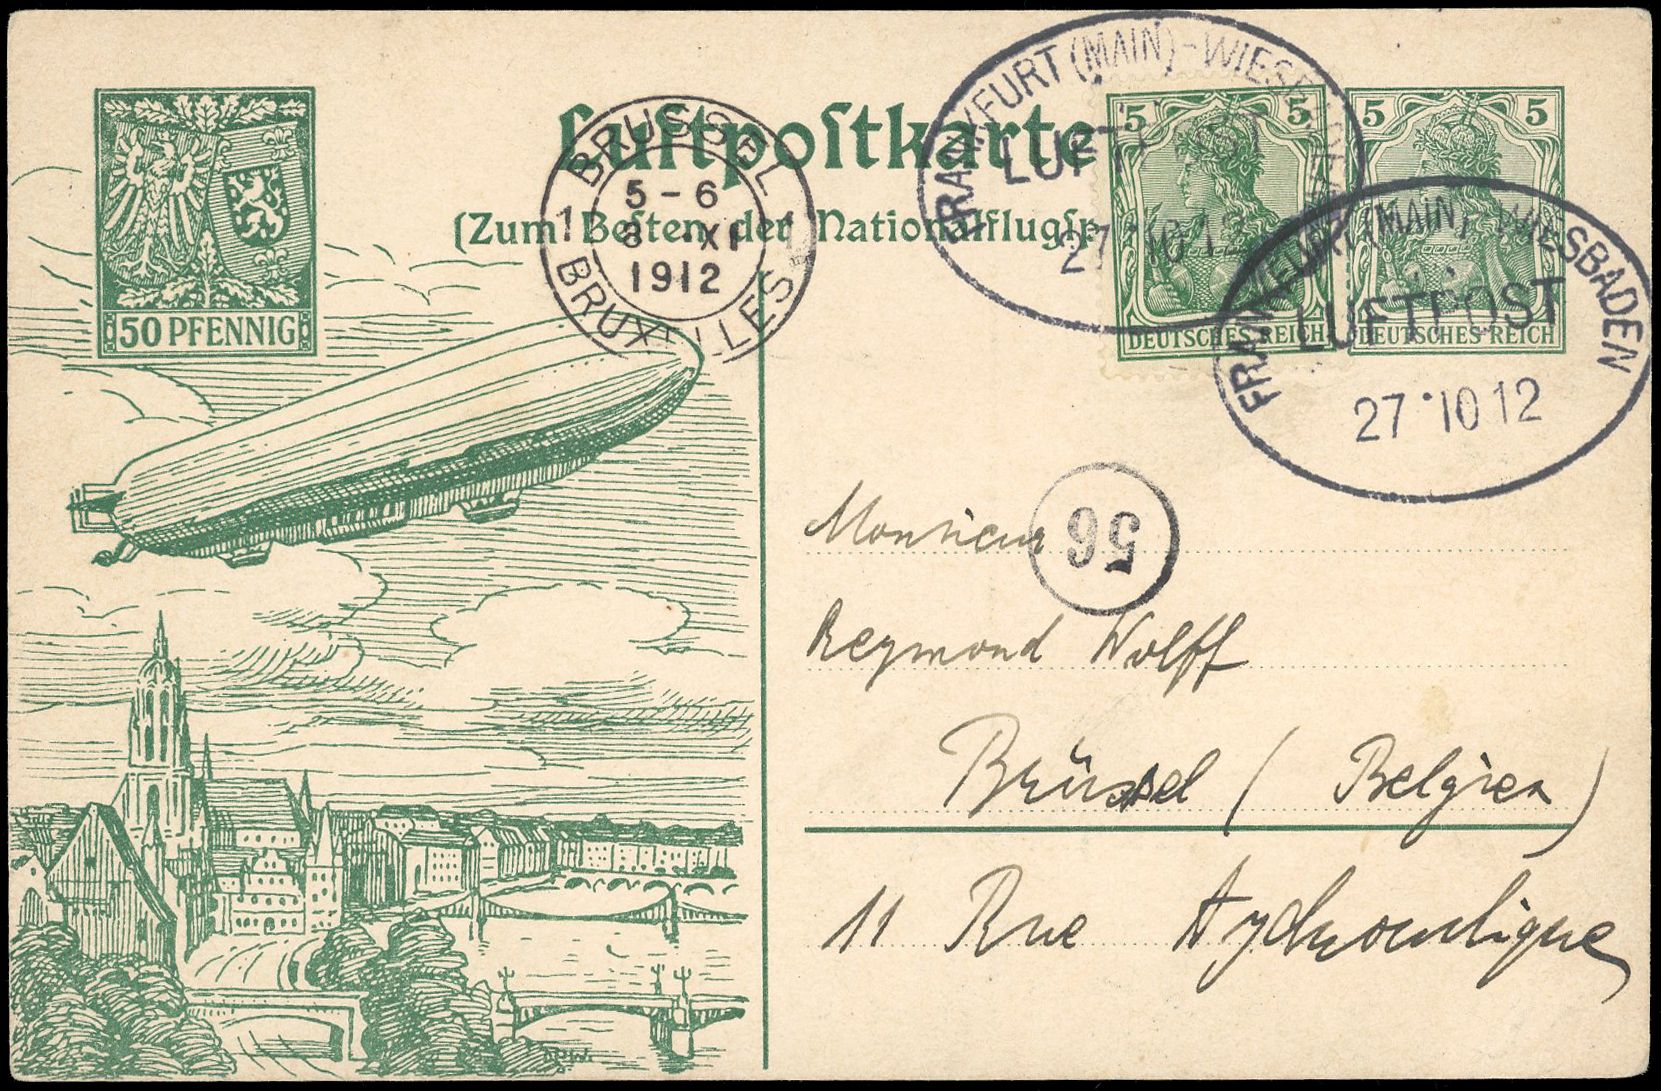 Luftpostkarte
(Zum Besten der Nationalflugsp
50 PFENNIG
BRUSSEL
5 - 6
8 -XI
1912
BRUXELLES
1 1
FRANKFURT (MAIN)-WIESBADEN
LUFTPOST
27 10 12
5 5
DEUTSCHES REICH
5 5
DEUTSCHES REICH
FRANKFURT (MAIN)-WIESBADEN
LUFTPOST
27 10 12
56
Monsieur
Reymond Wolff
Brüssel (Belgien)
11 Rue Hydraulique